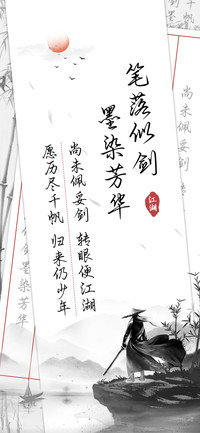 笔落似剑
墨染芳华
江湖
尚未佩妥剑 转眼便江湖
愿历尽千帆 归来仍少年
尚未佩妥剑
墨染芳华